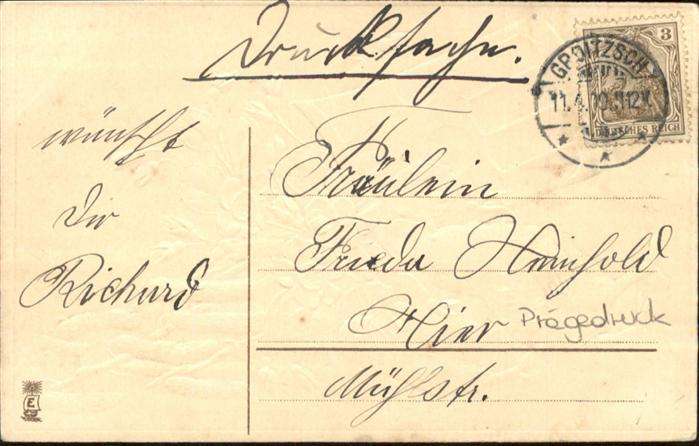 Drucksache.
3
DEUTSCHES REICH
GROITZSCH
11.4.
12V.
wünscht
Dir
Richard
Fräulein
Frieda Heinhold
Hier
Prägedruck
Mühlstr.
E